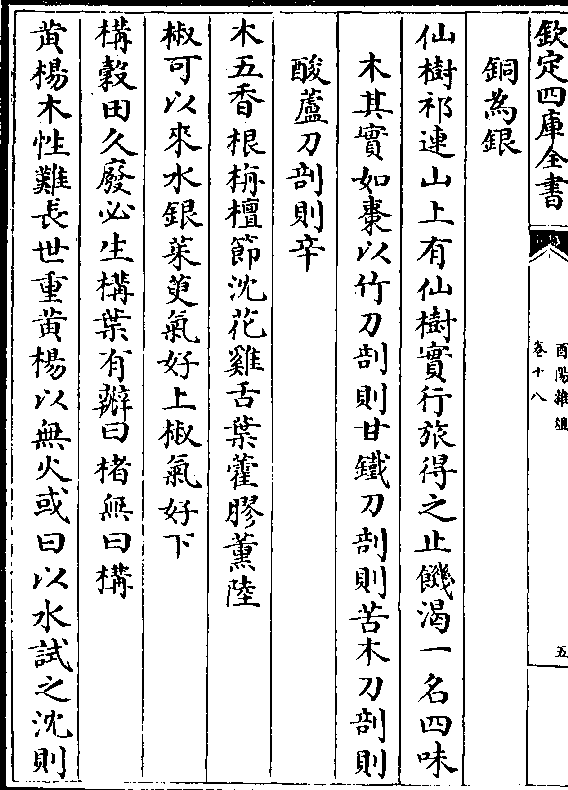 欽定四庫全書
酉陽雜俎
卷十八
五
銅為銀
仙樹祁連山上有仙樹實行旅得之止饑渴一名四味
木其實如棗以竹刀剖則甘鐵刀剖則苦木刀剖則
酸蘆刀剖則辛
木五香根栴檀節沈花雞舌葉藿膠薰陸
椒可以來水銀茱萸氣好上椒氣好下
構榖田久廢必生構葉有瓣曰楮無曰構
黃楊木性難長世重黃楊以無火或曰以水試之沈則